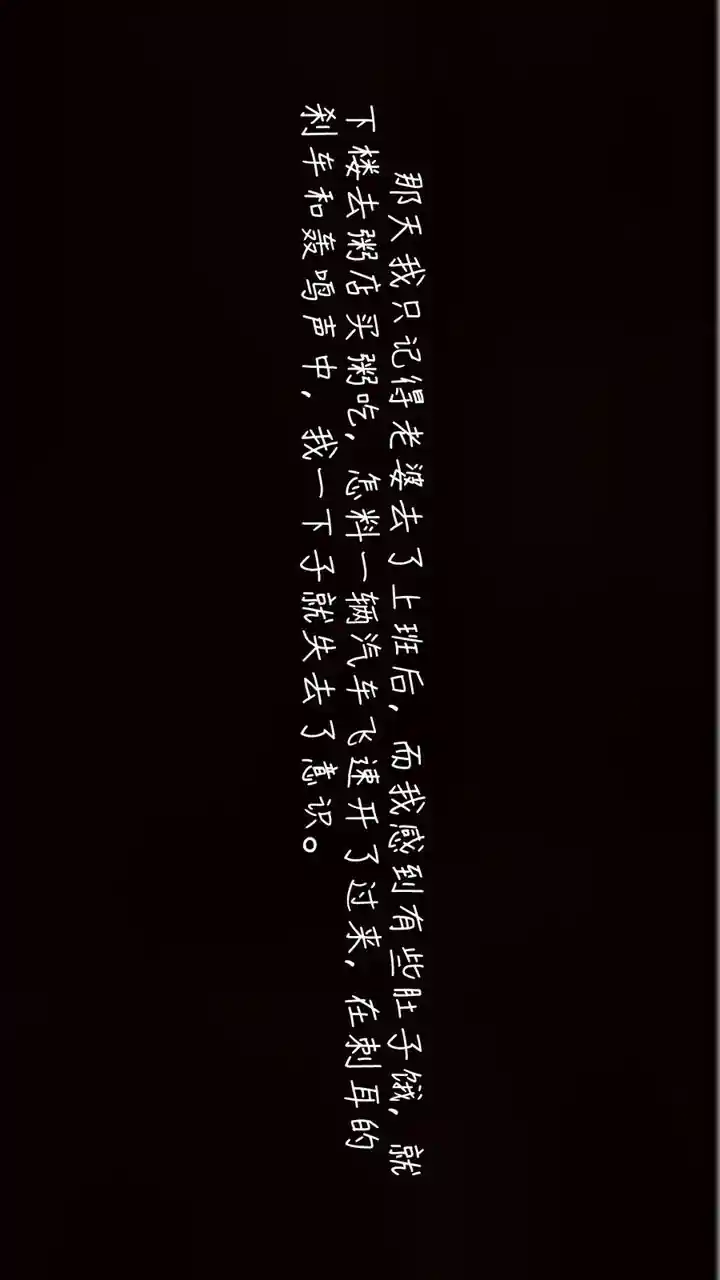 那天我只记得老婆去了上班后，而我感到有些肚子饿，就
下楼去粥店买粥吃，怎料一辆汽车飞速开了过来，在刺耳的
刹车和轰鸣声中，我一下子就失去了意识。